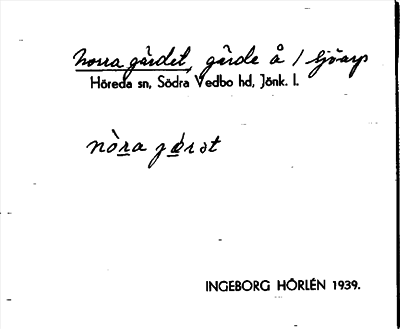 Norra gärdet, gärde å 1 Sjöarp
Höreda sn, Södra Vedbo hd, Jönk. l.
nòra gärət
INGEBORG HÖRLÉN 1939.